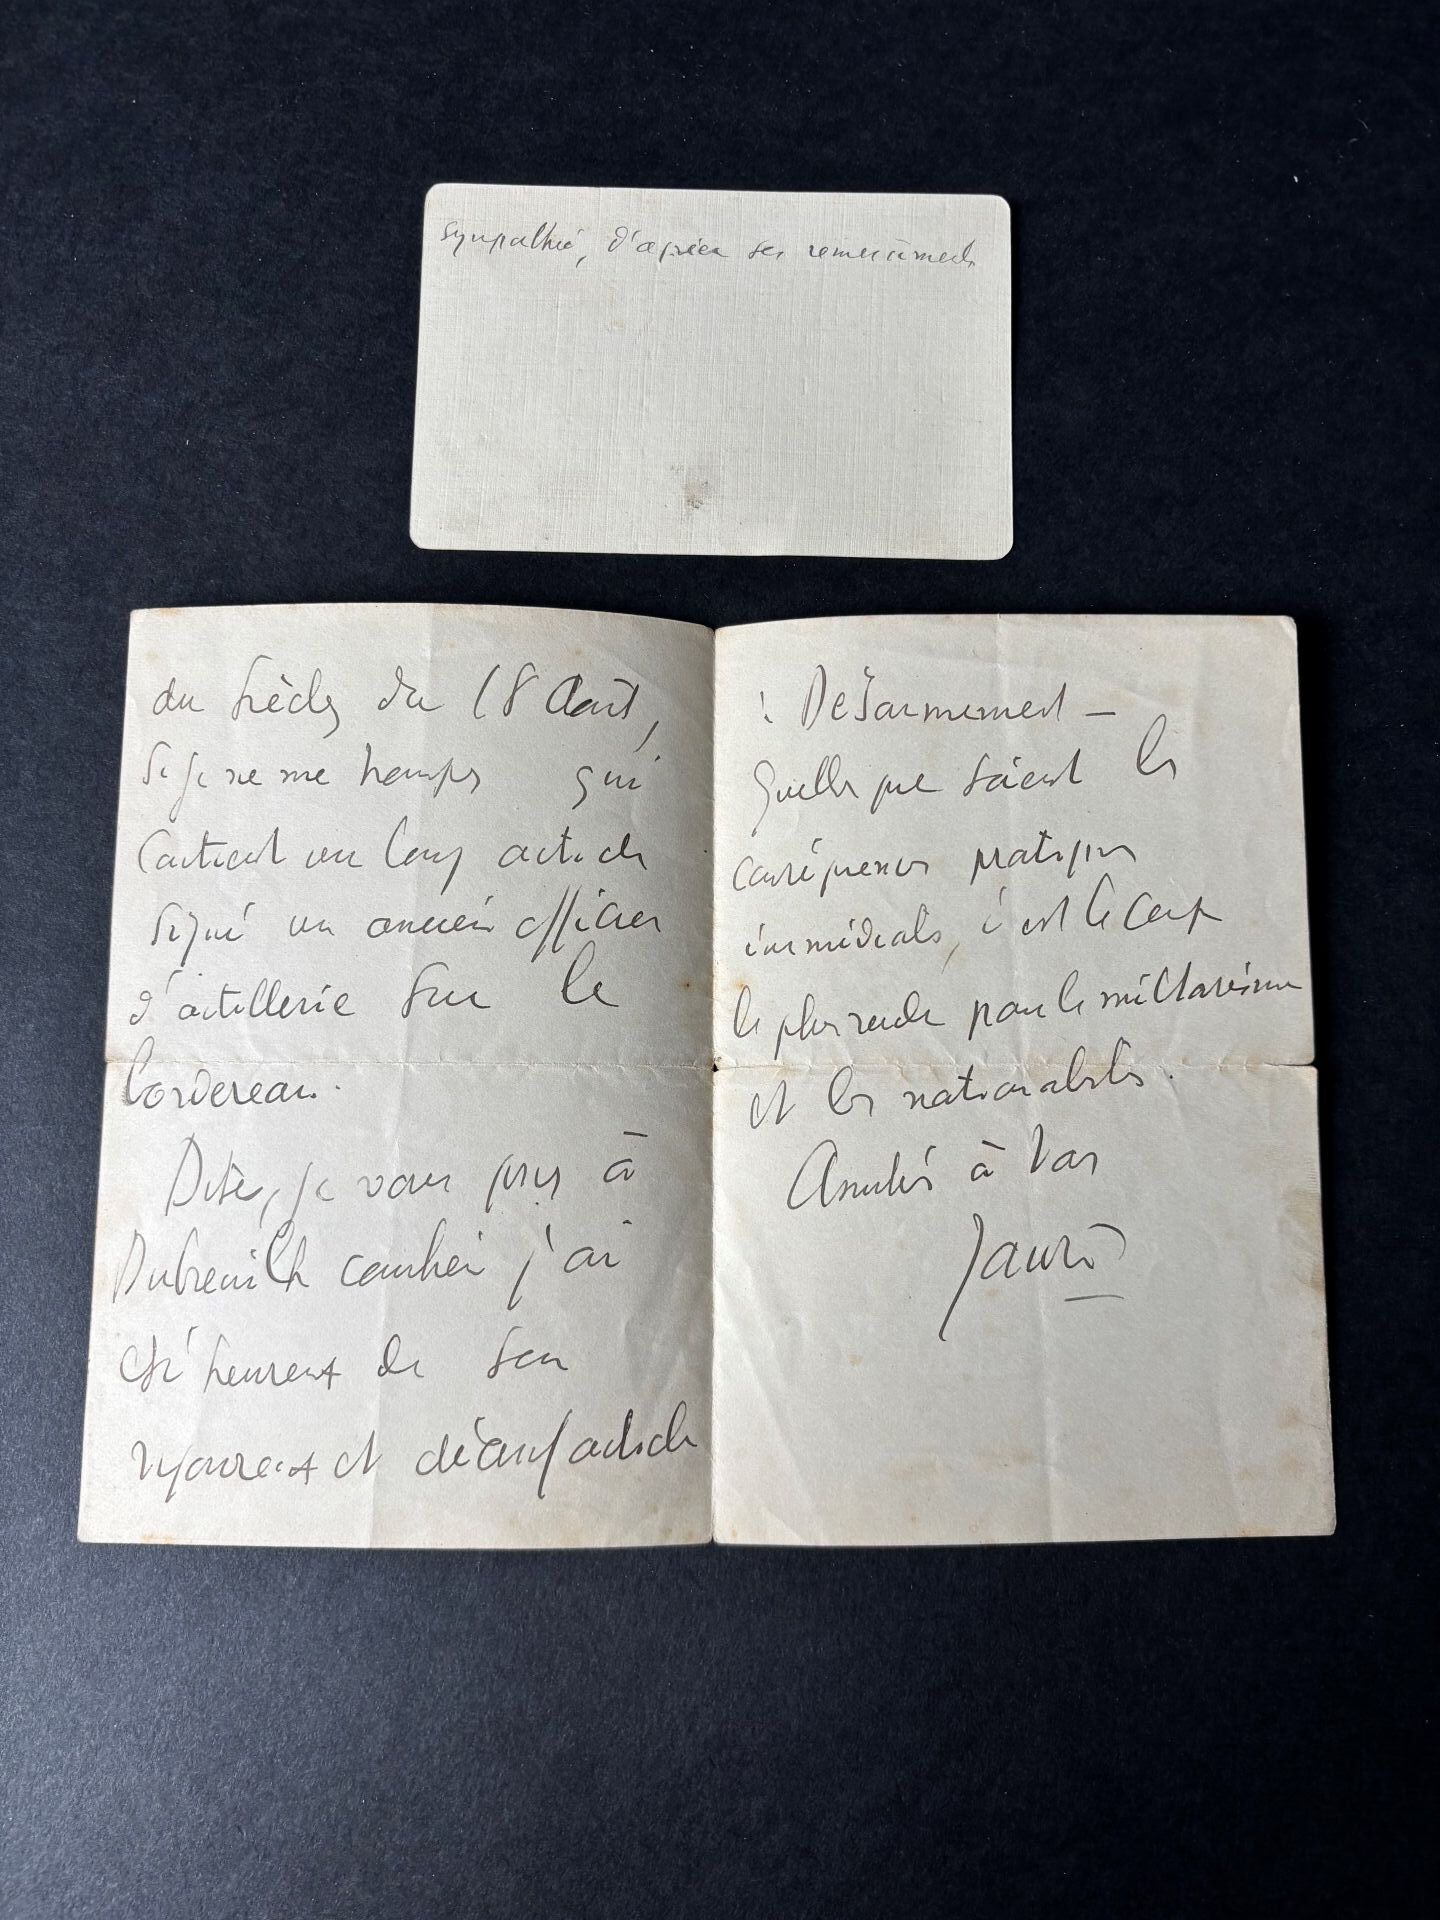 sympathie, d'agréer ses remerciements
du Siècle du 18 Août,
si je ne me trompe, qui
contient un long article
signé un ancien officier
d'artillerie sur le
bordereau.
Dites, je vous prie à
Dubreuilh combien j'ai
été heureux de son
vigoureux et décisif article
: Désarmement —
Quelles que soient les
conséquences pratiques
immédiates, c'est le coup
le plus rude pour le militarisme
et les nationalistes.
Amitiés à vous
Jaurès